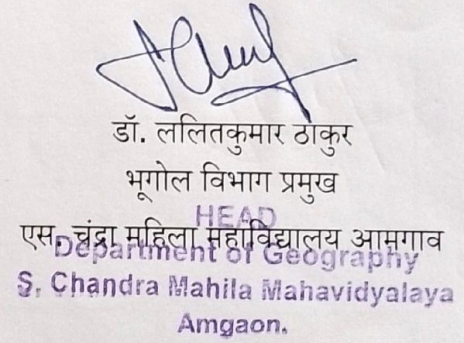 डॉ. ललितकुमार ठाकुर
भूगोल विभाग प्रमुख
HEAD
एस. चंद्रा महिला महाविद्यालय आमगाव
Department of Geography
S. Chandra Mahila Mahavidyalaya
Amgaon.